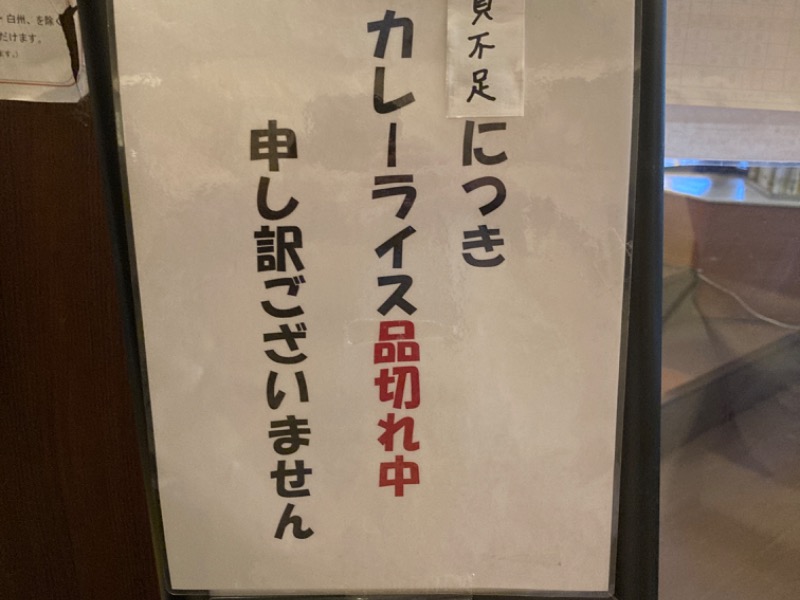 不足
につき
カレーライス品切れ中
申し訳ございません
・白州、を除く
だけます。
ます。)